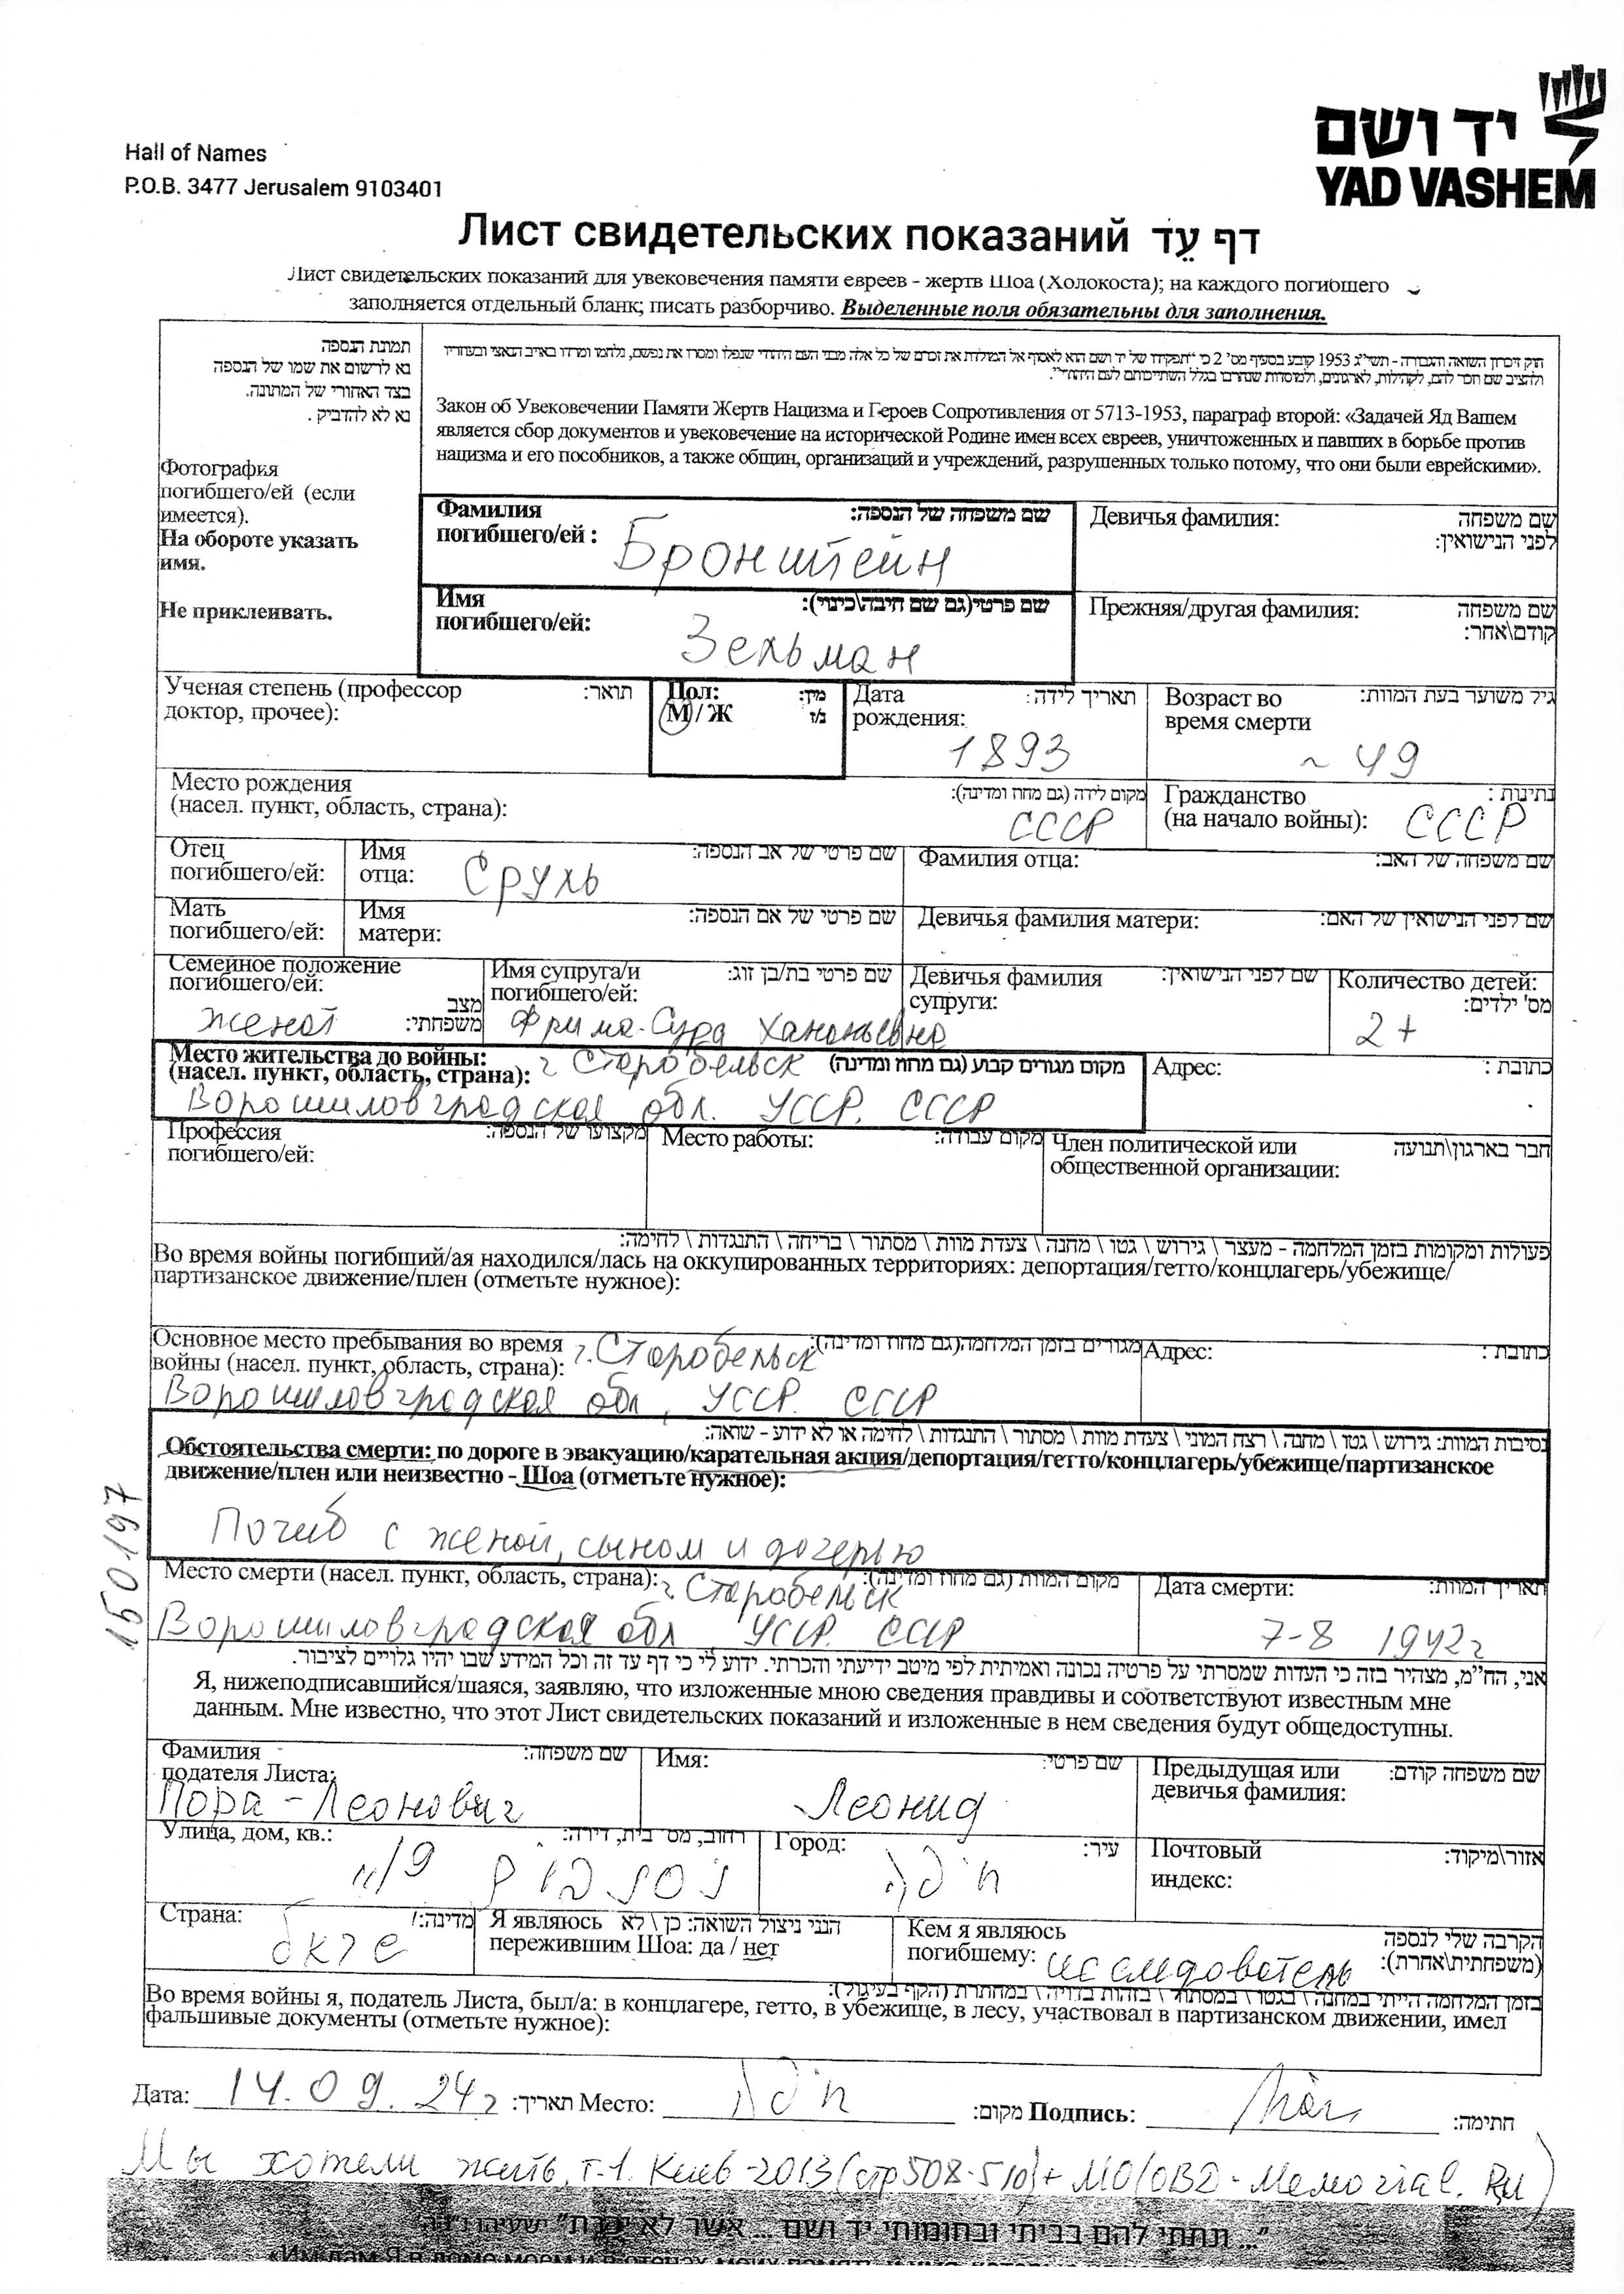 יד ושם
YAD VASHEM
Hall of Names
P.O.B. 3477 Jerusalem 9103401
Лист свидетельских показаний דף עֵד
Лист свидетельских показаний для увековечения памяти евреев - жертв Шоа (Холокоста); на каждого погибшего
заполняется отдельный бланк; писать разборчиво. Выделенные поля обязательны для заполнения.
תמונת הנספה
נא לרשום את שמו של הנספה
בצד האחורי של התמונה.
נא לא להדביק .
Фотография
погибшего/ей (если
имеется).
На обороте указать
имя.
Не приклеивать.
חוק זיכרון השואה והגבורה - תשי"ג 1953 קובע בסעיף מס' 2 כי "תפקידו של יד ושם הוא לאסוף אל המולדת את זכרם של כל אלה מבני העם היהודי שנפלו ומסרו את נפשם, נלחמו ומרדו באויב הנאצי ובעוזריו
ולהציב שם וזכר להם, לקהילות, לארגונים, ולמוסדות שנחרבו בגלל השתייכותם לעם היהודי".
Закон об Увековечении Памяти Жертв Нацизма и Героев Сопротивления от 5713-1953, параграф второй: «Задачей Яд Вашем
является сбор документов и увековечение на исторической Родине имен всех евреев, уничтоженных и павших в борьбе против
нацизма и его пособников, а также общин, организаций и учреждений, разрушенных только потому, что они были еврейскими».
Фамилия שם משפחה של הנספה:
погибшего/ей : Бронштейн
Девичья фамилия: שם משפחה
לפני הנישואין:
Имя שם פרטי(גם שם חיבה\כינוי):
погибшего/ей: Зельман
Прежняя/другая фамилия: שם משפחה
קודם\אחר:
Ученая степень (профессор תואר:
доктор, прочее):
Пол: מין:
М / Ж ז/נ
Дата תאריך לידה:
рождения: 1893
Возраст во גיל משוער בעת המוות:
время смерти ~ 49
Место рождения
(насел. пункт, область, страна): מקום לידה (גם מחוז ומדינה):
СССР
Гражданство נתינות :
(на начало войны): СССР
Отец
погибшего/ей:
Имя שם פרטי של אב הנספה:
отца: Сруль
Фамилия отца: שם משפחה של האב:
Мать
погибшего/ей:
Имя שם פרטי של אם הנספה:
матери:
Девичья фамилия матери: שם לפני הנישואין של האם:
Семейное положение
погибшего/ей: מצב
женат משפחתי:
Имя супруга/и שם פרטי בת/בן זוג:
погибшего/ей:
Фрима-Сура Хананьевна
Девичья фамилия שם לפני הנישואין:
супруги:
Количество детей:
מס' ילדים:
2+
Место жительства до войны:
(насел. пункт, область, страна): г Старобельск מקום מגורים קבוע (גם מחוז ומדינה)
Ворошиловградская обл. УССР. СССР
Адрес: כתובת :
Профессия מקצועו של הנספה:
погибшего/ей:
Место работы: מקום עבודה:
Член политической или חבר בארגון\תנועה
общественной организации:
פעולות ומקומות בזמן המלחמה - מעצר \ גירוש \ גטו \ מחנה \ צעדת מוות \ מסתור \ בריחה \ התנגדות \ לחימה:
Во время войны погибший/ая находился/лась на оккупированных территориях: депортация/гетто/концлагерь/убежище/
партизанское движение/плен (отметьте нужное):
Основное место пребывания во время מגורים בזמן המלחמה(גם מחוז ומדינה):
войны (насел. пункт, область, страна): г.Старобельск
Ворошиловградская обл, УССР. СССР
Адрес: כתובת :
נסיבות המוות: גירוש \ גטו \ מחנה \ רצח המוני \ צעדת מוות \ מסתור \ התנגדות \ לחימה או לא ידוע - שואה:
Обстоятельства смерти: по дороге в эвакуацию/карательная акция/депортация/гетто/концлагерь/убежище/партизанское
движение/плен или неизвестно - Шоа (отметьте нужное):
Погиб с женой, сыном и дочерью
150197
Место смерти (насел. пункт, область, страна): מקום המוות (גם מחוז ומדינה):
г Старобельск
Ворошиловградская обл УССР. СССР
Дата смерти: תאריך המוות:
7-8 1942г
אני, הח"מ, מצהיר בזה כי העדות שמסרתי על פרטיה נכונה ואמיתית לפי מיטב ידיעתי והכרתי. ידוע לי כי דף עד זה וכל המידע שבו יהיו גלויים לציבור.
Я, нижеподписавшийся/шаяся, заявляю, что изложенные мною сведения правдивы и соответствуют известным мне
данным. Мне известно, что этот Лист свидетельских показаний и изложенные в нем сведения будут общедоступны.
Фамилия שם משפחה:
подателя Листа:
Пора-Леонович
Имя: שם פרטי:
Леонид
Предыдущая или שם משפחה קודם:
девичья фамилия:
Улица, дом, кв.: רחוב, מס' בית, דירה:
Город: עיר:
חיפה
Почтовый אזור\מיקוד:
индекс:
Страна: מדינה:
Я являюсь הנני ניצול השואה: כן \ לא
пережившим Шоа: да / нет
Кем я являюсь הקרבה שלי לנספה
погибшему: исследователь (משפחתית\אחרת):
בזמן המלחמה הייתי במחנה\ בגטו \ במסתור \ בזהות בדויה \ במחתרת (הקף בעיגול):
Во время войны я, податель Листа, был/а: в концлагере, гетто, в убежище, в лесу, участвовал в партизанском движении, имел
фальшивые документы (отметьте нужное):
Дата: 14.09.24г תאריך: Место: חיפה מקום: Подпись: חתימה:
Мы хотели жить, т-1. Киев-2013(стр508-510)+ МО(OBD-Memorial.Ru)
"... ונתתי להם בביתי ובחומותי יד ושם ... אשר לא יכרת" ישעיהו נ"ו ה'